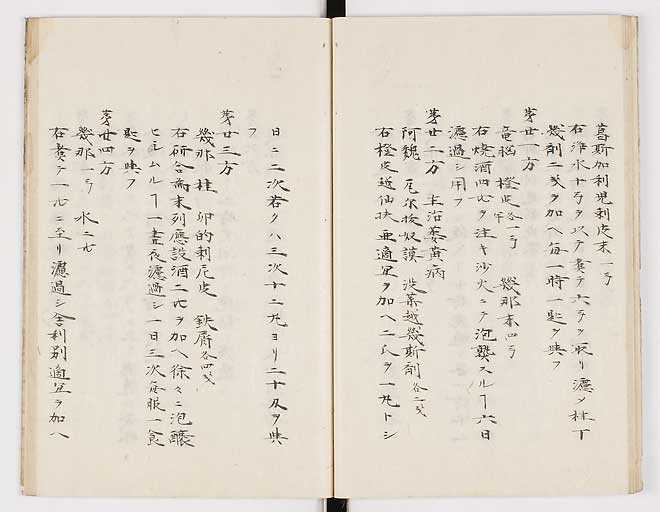 葛斯加利児剌皮末一弓
右浄水十弓ヲ以テ煑テ六弓ヲ取リ濾メ桂丁
幾剤二戔ヲ加ヘ毎一時一匙ヲ與フ
苐廿一方
竜脳 橙皮各一弓半 幾那末四弓
右焼酒四ヒヲ注キ沙火ニテ泡釀スルヿ六日
濾過シ用フ
苐廿二方 主治萎黄病
阿魏 尼尓接奴謨 没薬越幾斯剤各二戔
右橙皮越仙扶亜適宜ヲ加ヘ二氏ヲ一丸トシ
日ニ二次若クハ三次十二丸ヨリ二十丸ヲ與
フ
苐廿三方
幾那 桂 卯的利尼皮 鉄屑各四戔
右研合為末列應設酒二ヒヲ加ヘ徐々ニ泡釀
セシムルヿ一晝夜濾過シ一日三次毎服一食
匙ヲ與フ
苐廿四方
幾那一弓 水二ヒ
右煑テ一ヒニ至リ濾過シ舎利別適宜ヲ加ヘ